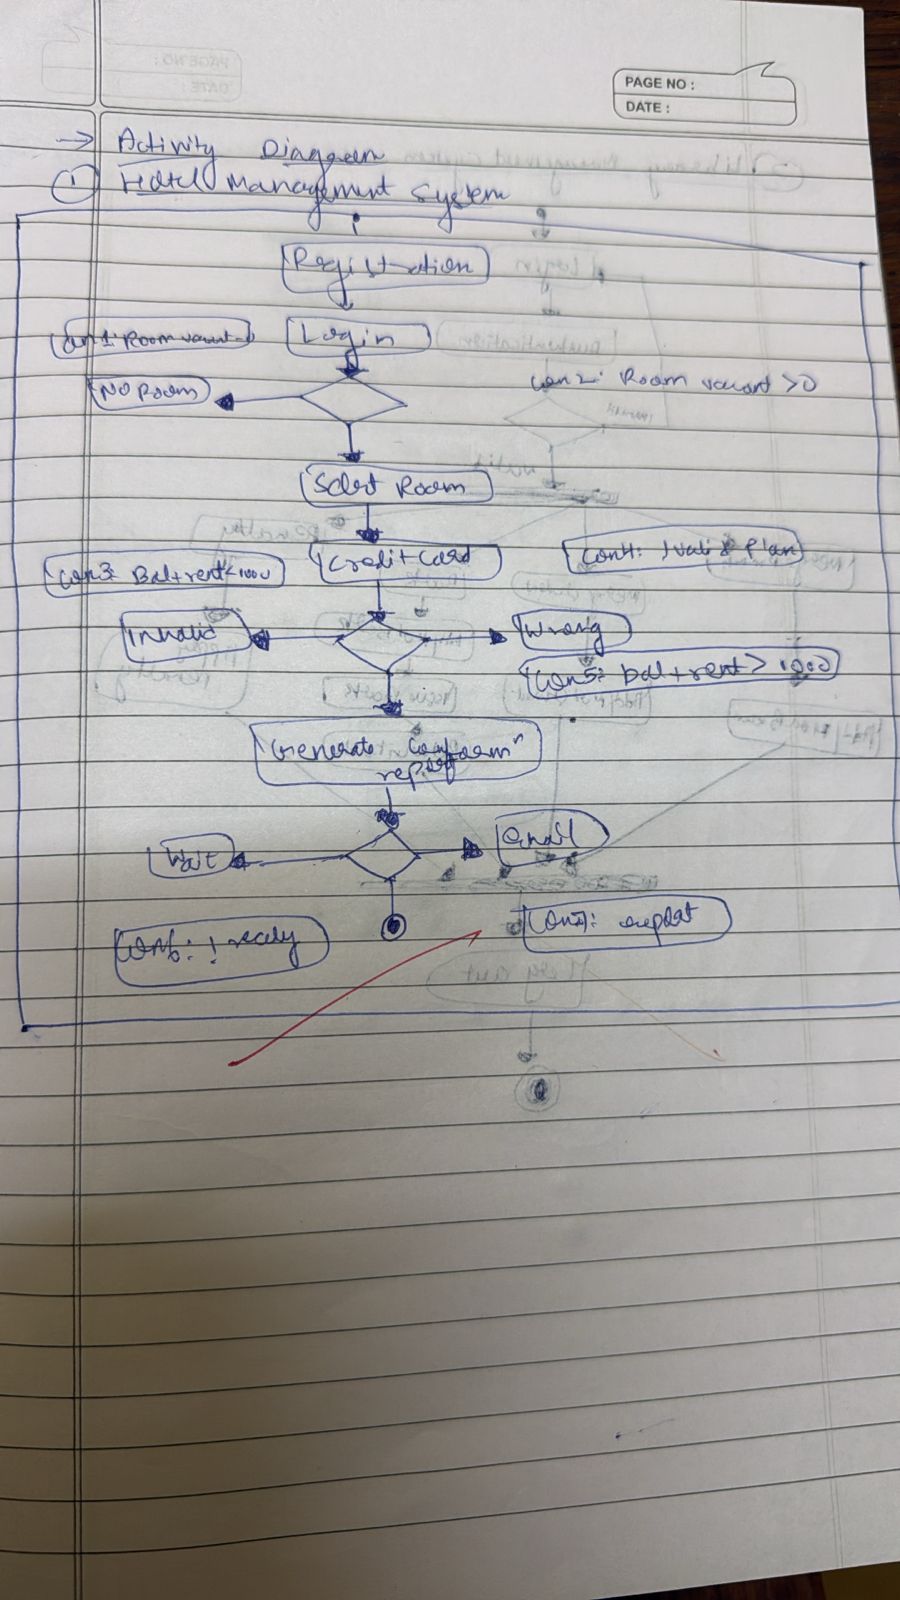 PAGE NO :
DATE :
→ Activity Diagram
① Hotel Management System
Registration
Con 1: Room vacant
Login
No Room
Con 2: Room vacant > 0
Select Room
Credit Card
Con 4: !valid Plan
Con 3: Bal + rent < 1000
Invalid
Wrong
Con 5: bal + rent > 1000
Generate
Wait
email
Con 6: ! ready